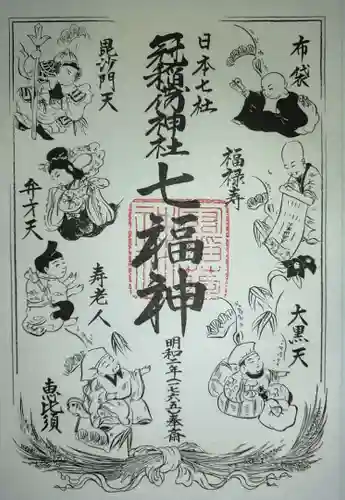 日本七社
冠稲荷神社
七福神
布袋
福禄寿
大黒天
毘沙門天
弁才天
寿老人
恵比須
明和二年(一七六五)奉斎